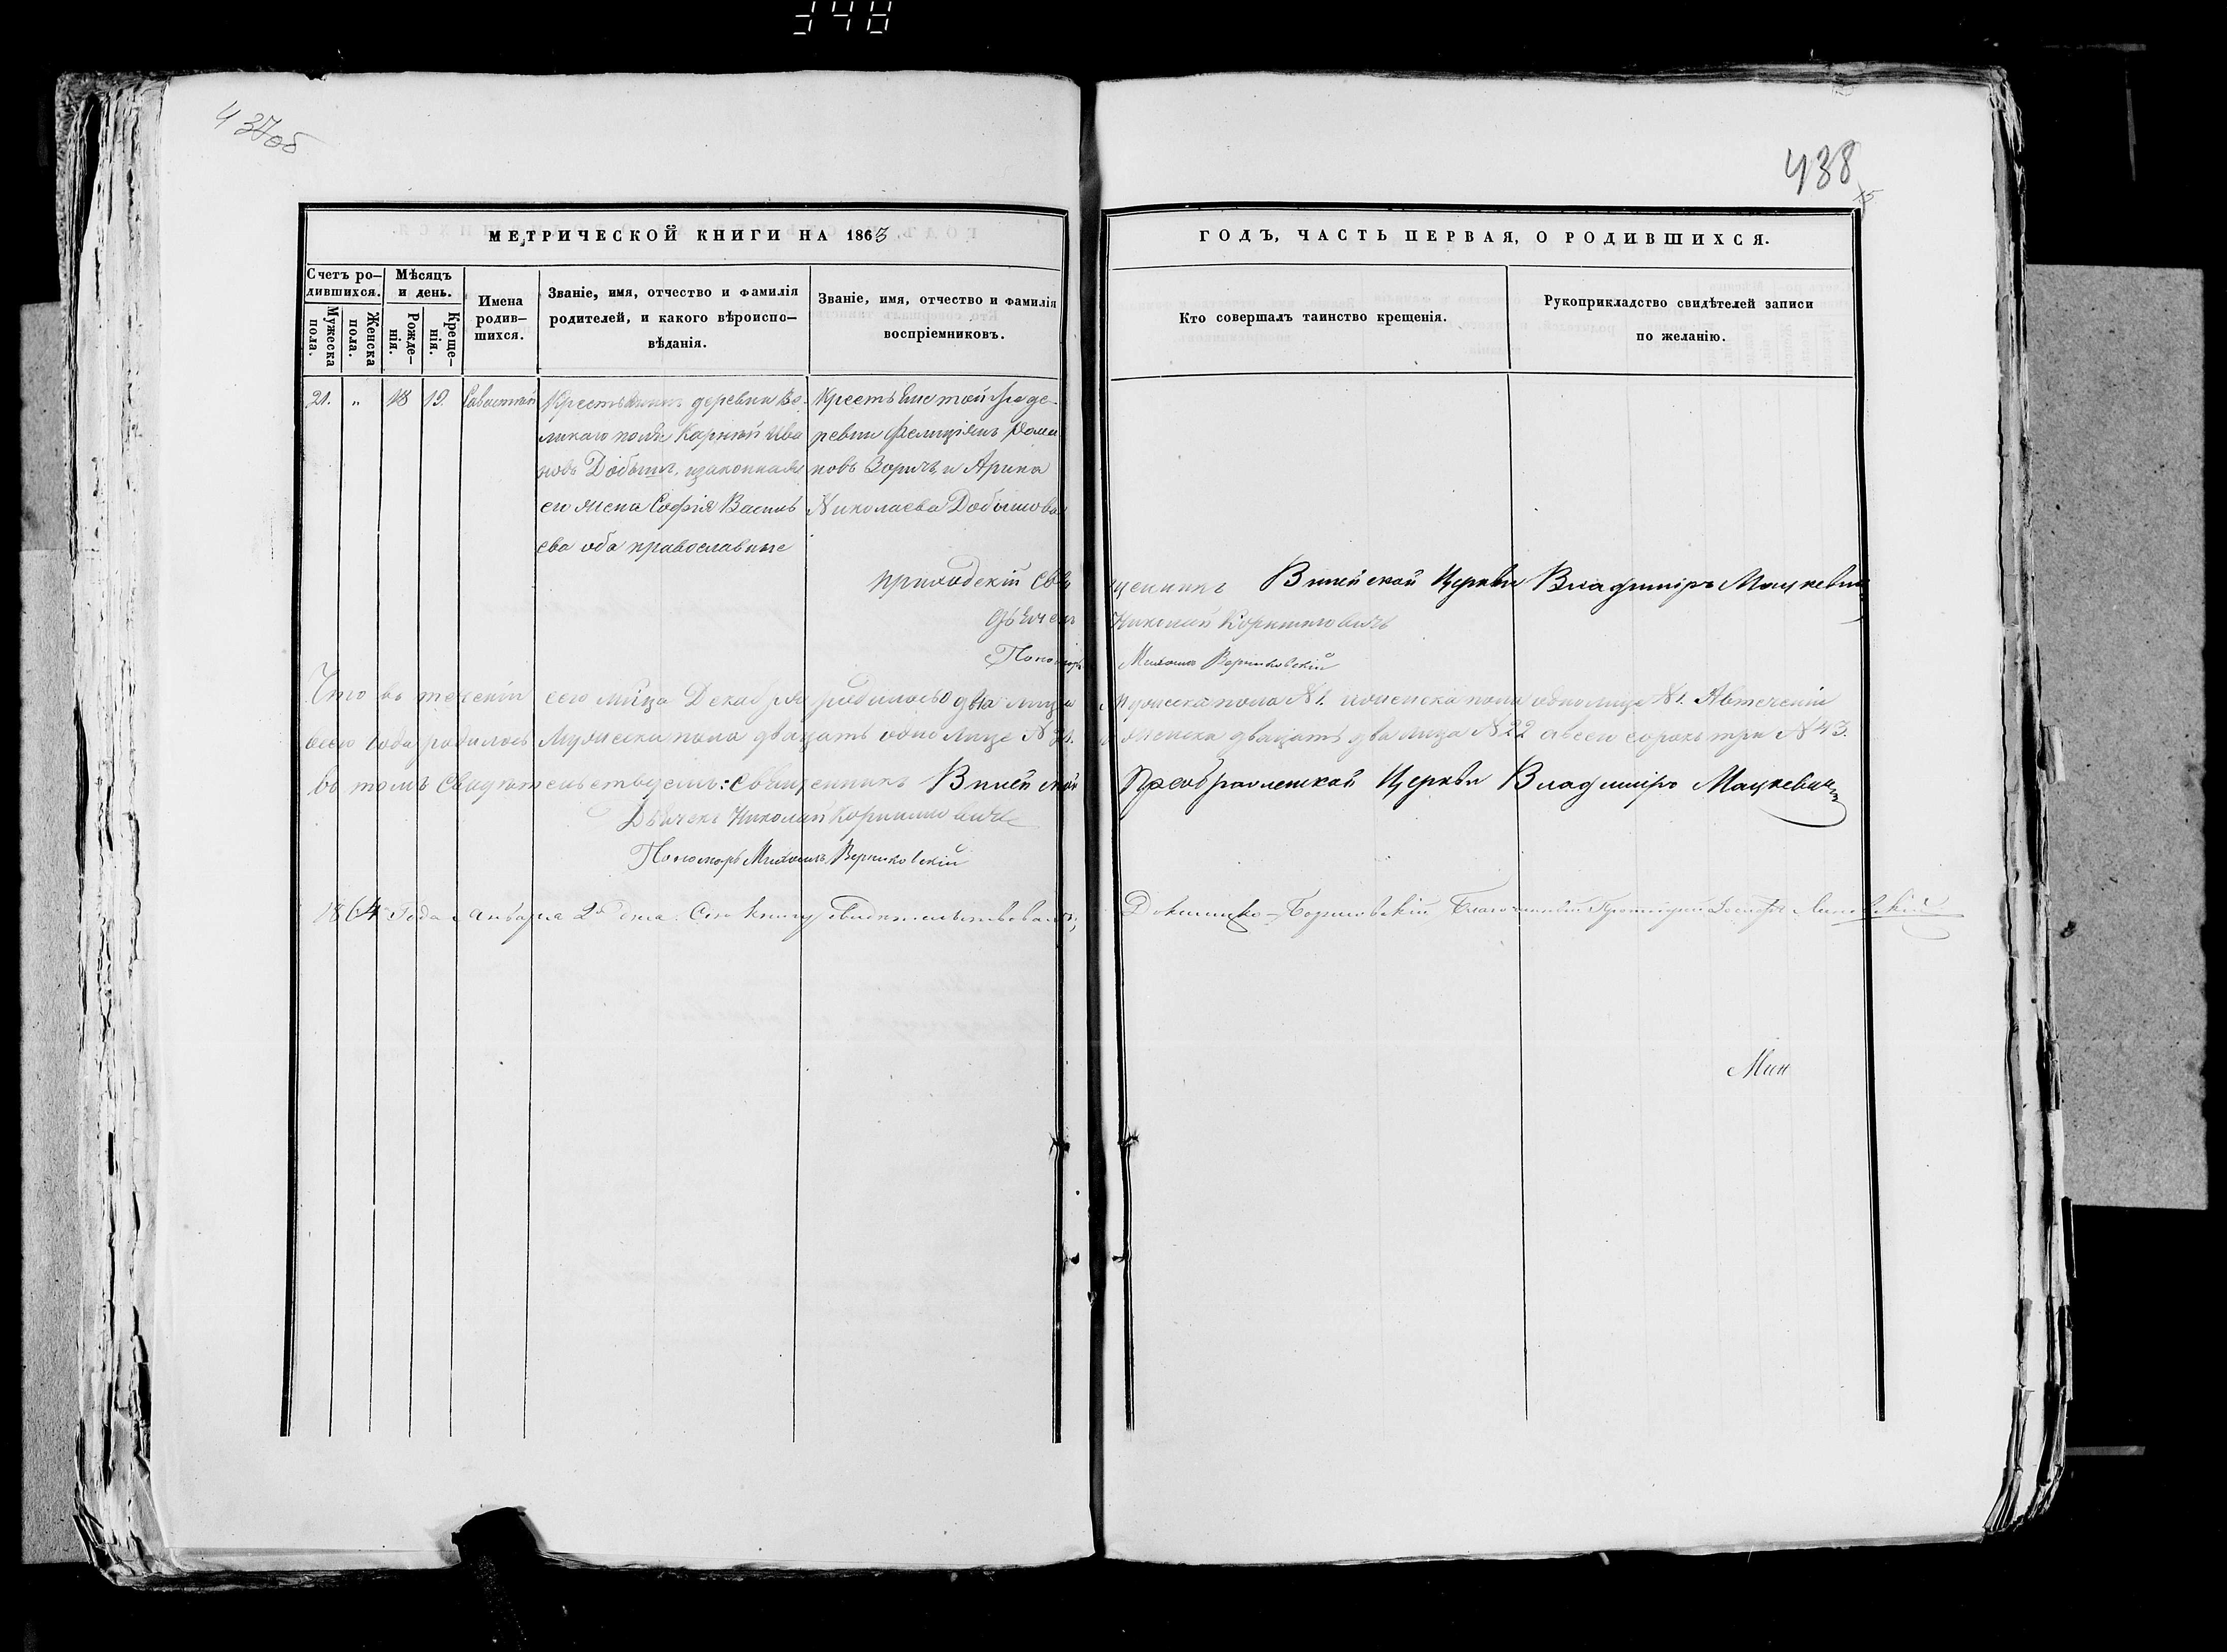 348
437об
438
МЕТРИЧЕСКОЙ КНИГИ НА 1863
ГОДЪ, ЧАСТЬ ПЕРВАЯ, О РОДИВШИХСЯ.
Счетъ ро-
дившихся.
Мужеска
пола.
Женска
пола.
Мѣсяцъ
и день.
Рожде-
нія.
Креще-
нія.
Имена
родив-
шихся.
Званіе, имя, отчество и фамилія
родителей, и какого вѣроиспо-
вѣданія.
Званіе, имя, отчество и фамилія
воспріемниковъ.
Кто совершалъ таинство крещенія.
Рукоприкладство свидѣтелей записи
по желанію.
21. „ 18 19. Савастіан
Крестьянинъ деревни Ве-
ликаго поля Карній Ива
новъ Добышъ, изаконная
его жена Софія Василь
ева оба православные
Крестьяне той же де-
ревни Фелиціянъ
новъ Зоричъ и Арина
Николаева Добышова
приходскій Свя
щенникъ Вілейской Церкви Владиміръ Мацкевич
Дьячекъ Николай
Пономарь Михаилъ Верниковскій
Что въ теченіи сего мѣсяца Декабря родилось два лица Мужеска пола №1. и женска пола одно лице №1. А втеченіи
всего года родилось Мужеска пола двацать одно лице №21. и женска двацать два лица №22 а всего сорокъ три №43.
въ томъ Свидѣтельствуемъ: Священникъ Вілейской Преображенской Церкви Владиміръ Мацкевичъ
Дьячекъ Николай
Пономарь Михаилъ Верниковскій
1864 года января 2 дня. Сію книгу свидѣтельствовалъ, Докшицко-Борисовскій Благочинный Протоіерей
Мин